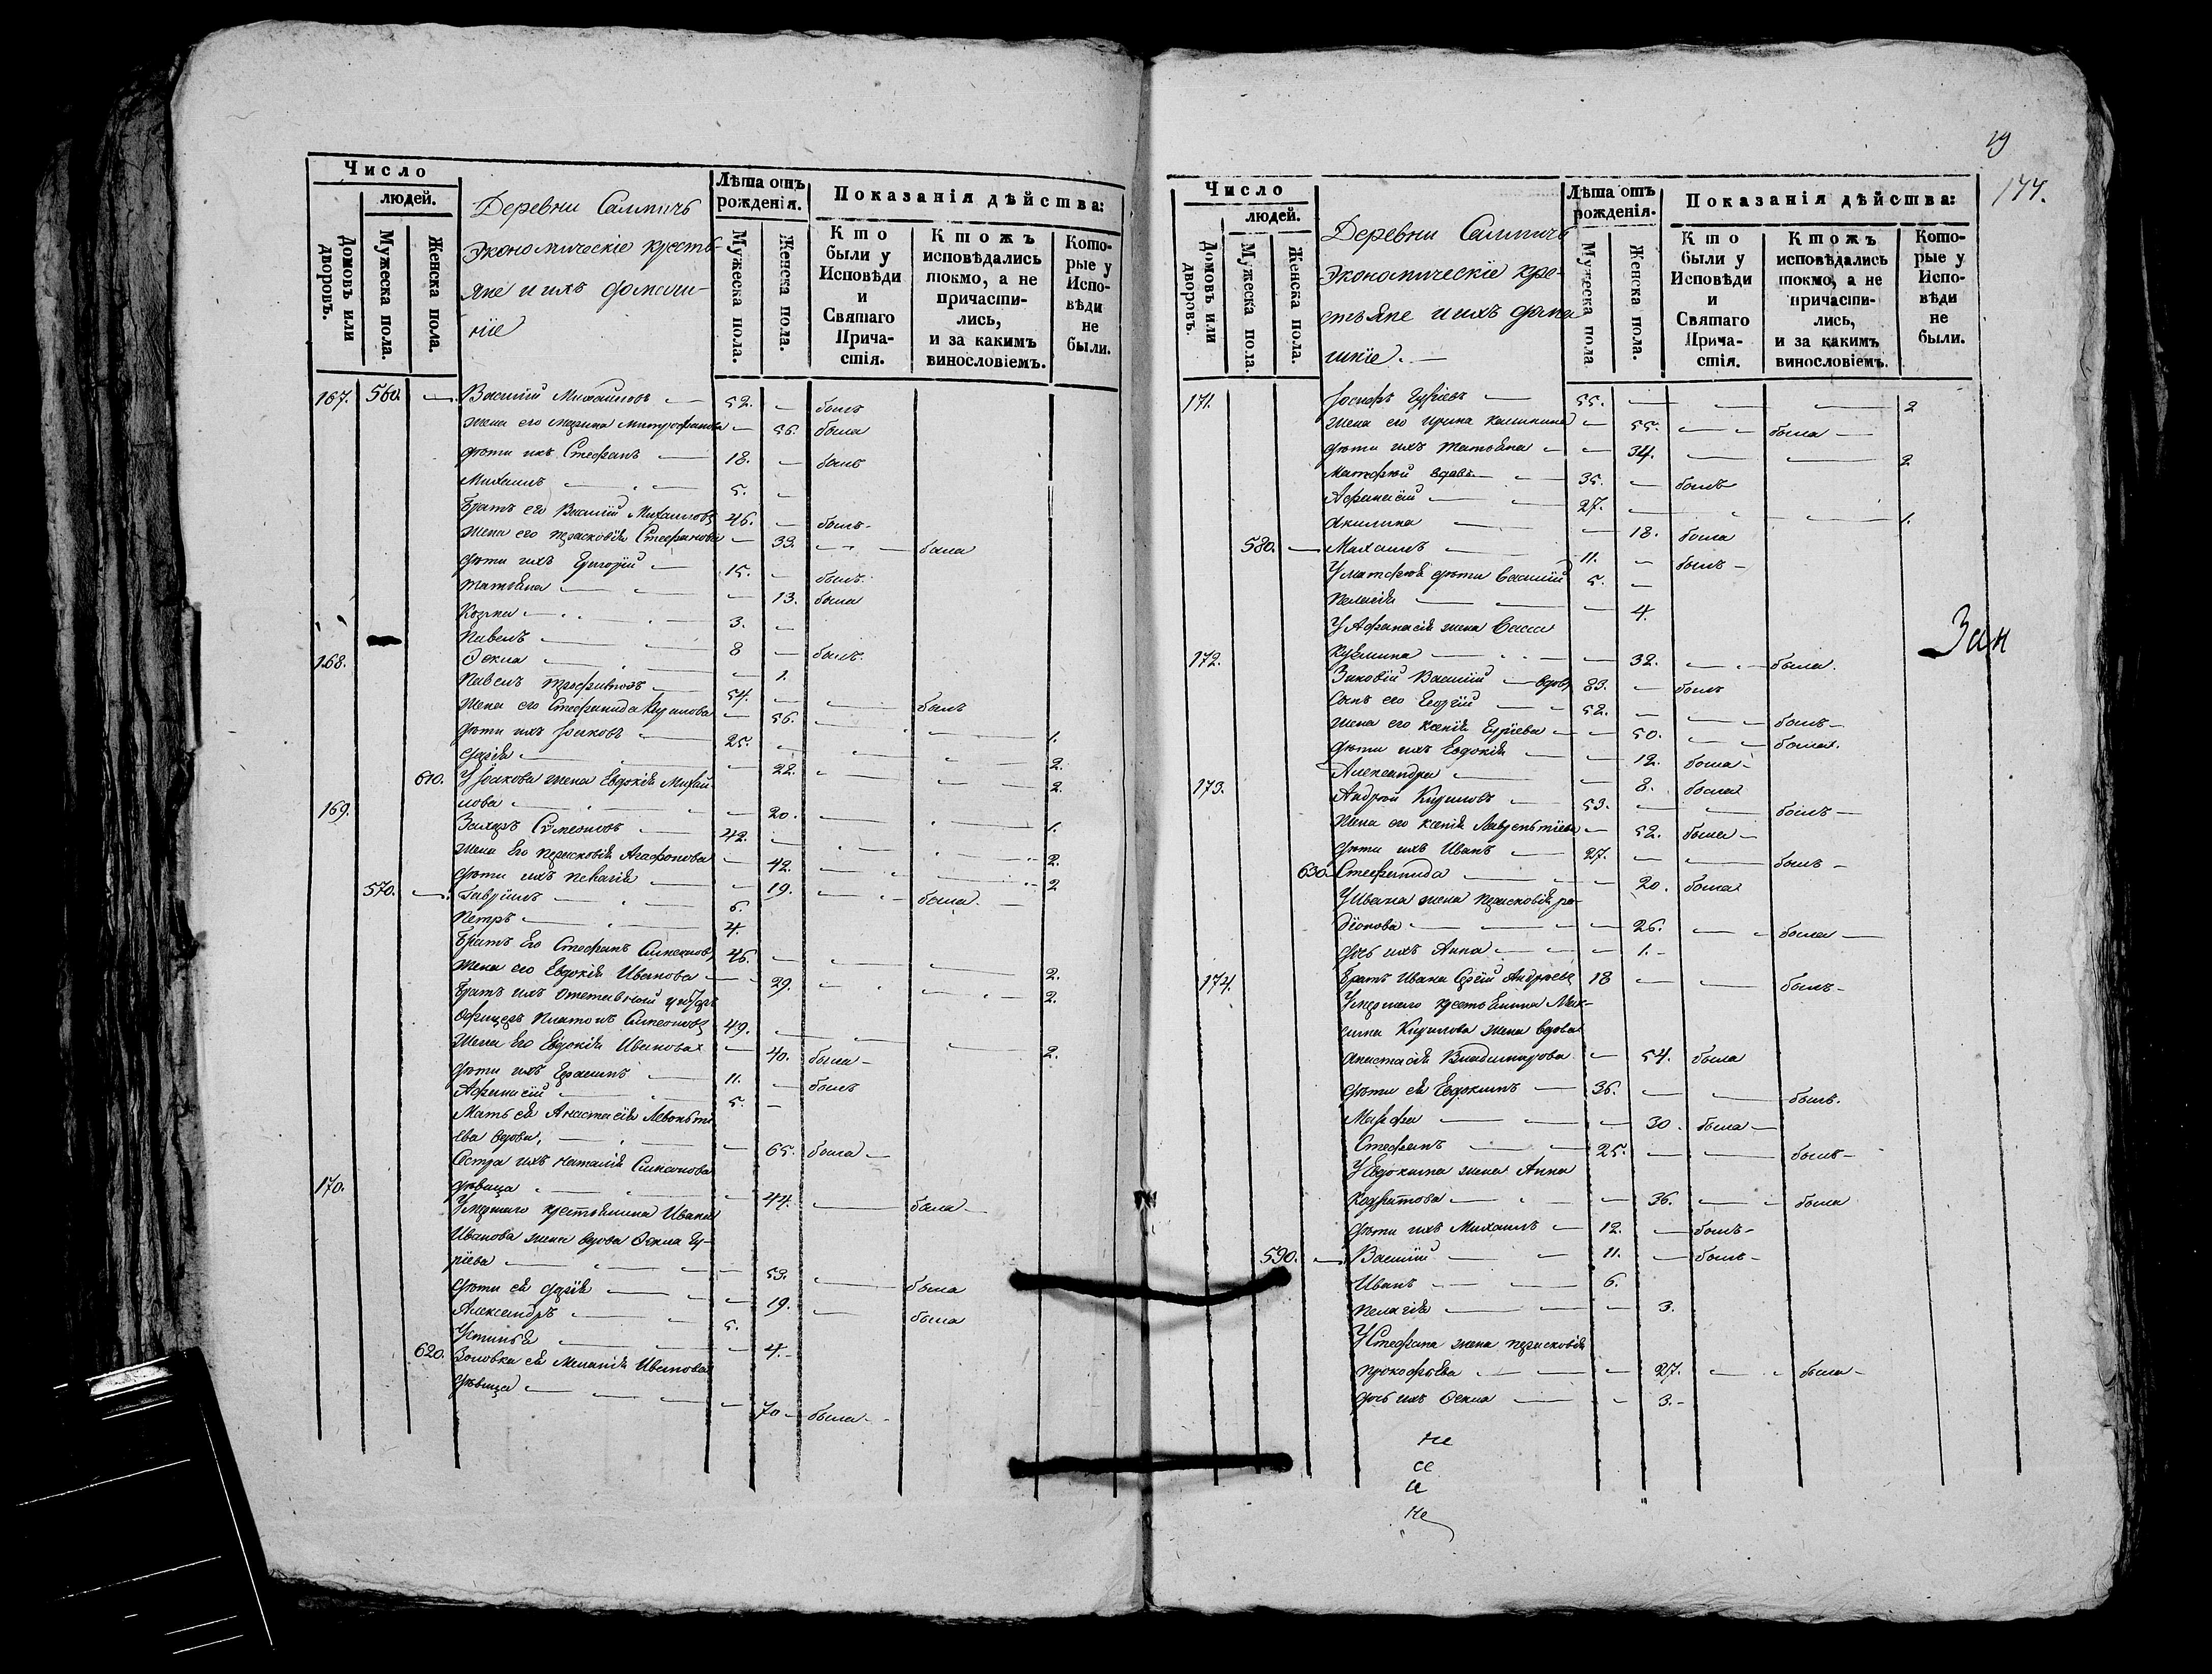 Число
людей.
Домовъ или дворовъ.
Мужеска пола.
Женска пола.
Деревни
Экономическіе кресть-
яне и ихъ домаш-
ніе
Лѣта отъ рожденія.
Мужеска пола.
Женска пола.
Показанія дѣйства:
Кто были у Исповѣди и Святаго Прича-стія.
Ктожъ исповѣдались токмо, а не причасти-лись, и за какимъ винословіемъ.
Кото-рые у Испо-вѣди не были.
167. 560. Василий Михайловъ 52. былъ
жена его Митрофанова 56. была
дѣти ихъ Стефанъ 18. былъ
Михаилъ 5.
братъ его Василий Михайловъ 46. былъ
жена его Парасковія Стефанова 39. была
дѣти ихъ Григорій 15. былъ
Татьяна 13. была
Козма 3.
Павелъ 8 былъ
Ѳекла 1.
168. Павелъ 54. былъ
жена его Стефанида 56. 1.
дѣти ихъ Іаковъ 25. 2.
Дарія 22. 2.
610. У Іакова жена Евдокія Михай
лова 20. 1.
169. Захаръ Сѵмеоновъ 42. 2.
жена Его Парасковія Агафонова 42. 2
дѣти ихъ Пелагія 19. была
570. Гавріилъ 6.
Петръ 4.
братъ Его Стефанъ 46. 2.
жена его Евдокія Иванова 29. 2.
братъ ихъ отставной
Офицеръ Платонъ Симеоновъ 49. 2.
жена Его Евдокія Иванова 40. была
дѣти ихъ 11. былъ
Афанасій 5.
Мать ея Анастасія Леонть
ева вдова 65. была
Сестра ихъ Наталія
дѣвица 44. была
170. Умершаго крестьянина Ивана
Иванова жена вдова Ѳекла Гу-
ріева 53. была
дѣти ея Дарія 19. была
Александръ 5.
Устинья 4.
620. Золовка ея Меланія Иванова
дѣвица 70 была
19
177.
Число
людей.
Домовъ или дворовъ.
Мужеска пола.
Женска пола.
Деревни
Экономическіе кре-
стьяне и ихъ дома
шніе.
Лѣта отъ рожденія.
Мужеска пола
Женска пола.
Показанія дѣйства:
Кто были у Исповѣди и Святаго Прича-стія.
Ктожъ исповѣдались токмо, а не причасти-лись, и за какимъ винословіемъ.
Кото-рые у Испо-вѣди не были.
171. Іосифъ Гуріевъ 55. 2
жена его Ирина 55. была
дѣти ихъ Татьяна 34. 2
Матфей вдовъ 35. былъ
Афанасій 27. 1.
Акилина 18. была
580. Михаилъ 11. былъ
У Матфея дѣти Василий 5.
Пелагія 4.
У Афанасія жена Васса
Кузмина 32. была
172. Василий вдовъ 83. былъ
Сынъ его Георгій 52. былъ
жена его Ксенія Гуріева 50. была
дѣти ихъ Евдокія 12. была
Александра 8. была
173. Андрей Кириловъ 53. былъ
Жена его Ксенія Лаврентіева 52. была
дѣти ихъ Иванъ 27. былъ
630. Стефанида 20. была
У Ивана жена Парасковія ро-
діонова 26. была
дочь ихъ Анна 1.
братъ Ивана Сергій Андреевъ 18 былъ
174. Умершаго крестьянина Мак-
сима Кирилова жена вдова
Анастасія Владимирова 54. была
дѣти ея Евдокимъ 36. былъ
Марфа 30. была
Стефанъ 25. былъ
У Евдокима жена Анна
Кодратова 36. была
дѣти ихъ Михаилъ 12. былъ
590. Василий 11. былъ
Иванъ 6.
Пелагія 3.
У Стефана жена Парасковія
Прокофьева 27. была
дочь ихъ Ѳекла 3.